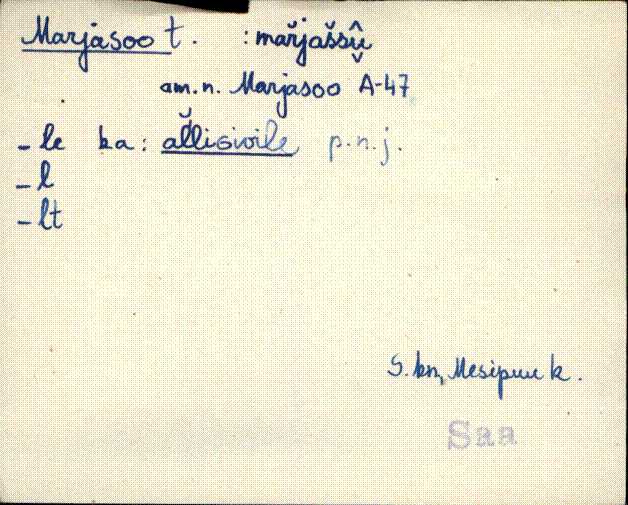 Marjasoo t. : mař̌jaššû
am.n. Marjasoo A-47
-le ka: allisivile p.n.j.
-l
-lt
S. kn, Mesipuu k.
Saa